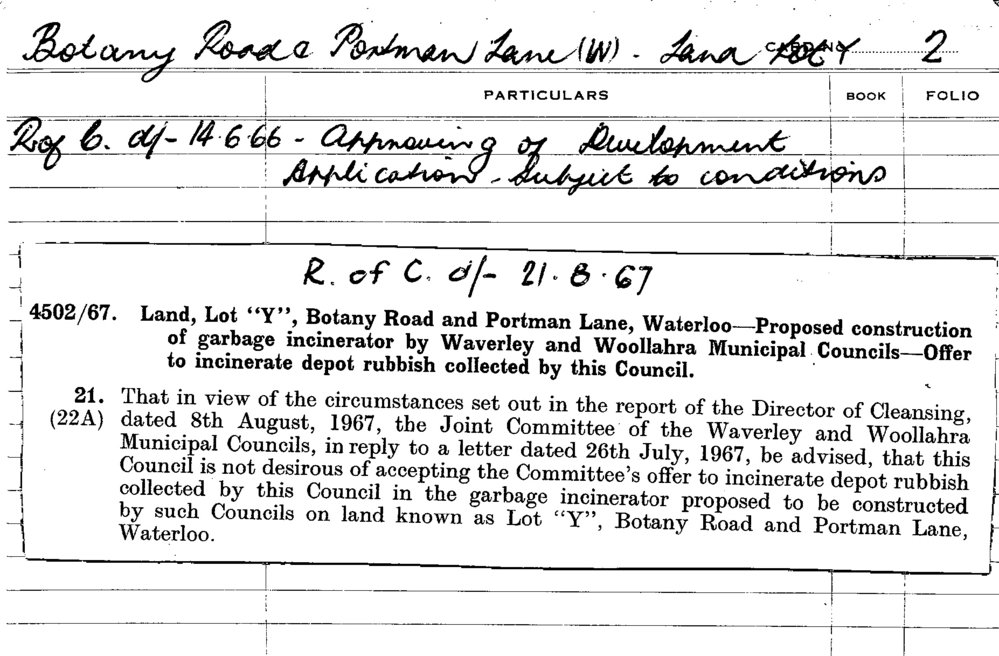 Botany Road & Portman Lane (W) - Land Lot Y CARD No. 2
PARTICULARS BOOK FOLIO
R. of C. d/- 14.6.66 - Approving of Development
Application - Subject to conditions
R. of C. d/- 21.8.67
4502/67. Land, Lot “Y”, Botany Road and Portman Lane, Waterloo—Proposed construction
of garbage incinerator by Waverley and Woollahra Municipal Councils—Offer
to incinerate depot rubbish collected by this Council.
21. That in view of the circumstances set out in the report of the Director of Cleansing,
(22A) dated 8th August, 1967, the Joint Committee of the Waverley and Woollahra
Municipal Councils, in reply to a letter dated 26th July, 1967, be advised, that this
Council is not desirous of accepting the Committee’s offer to incinerate depot rubbish
collected by this Council in the garbage incinerator proposed to be constructed
by such Councils on land known as Lot “Y”, Botany Road and Portman Lane,
Waterloo.